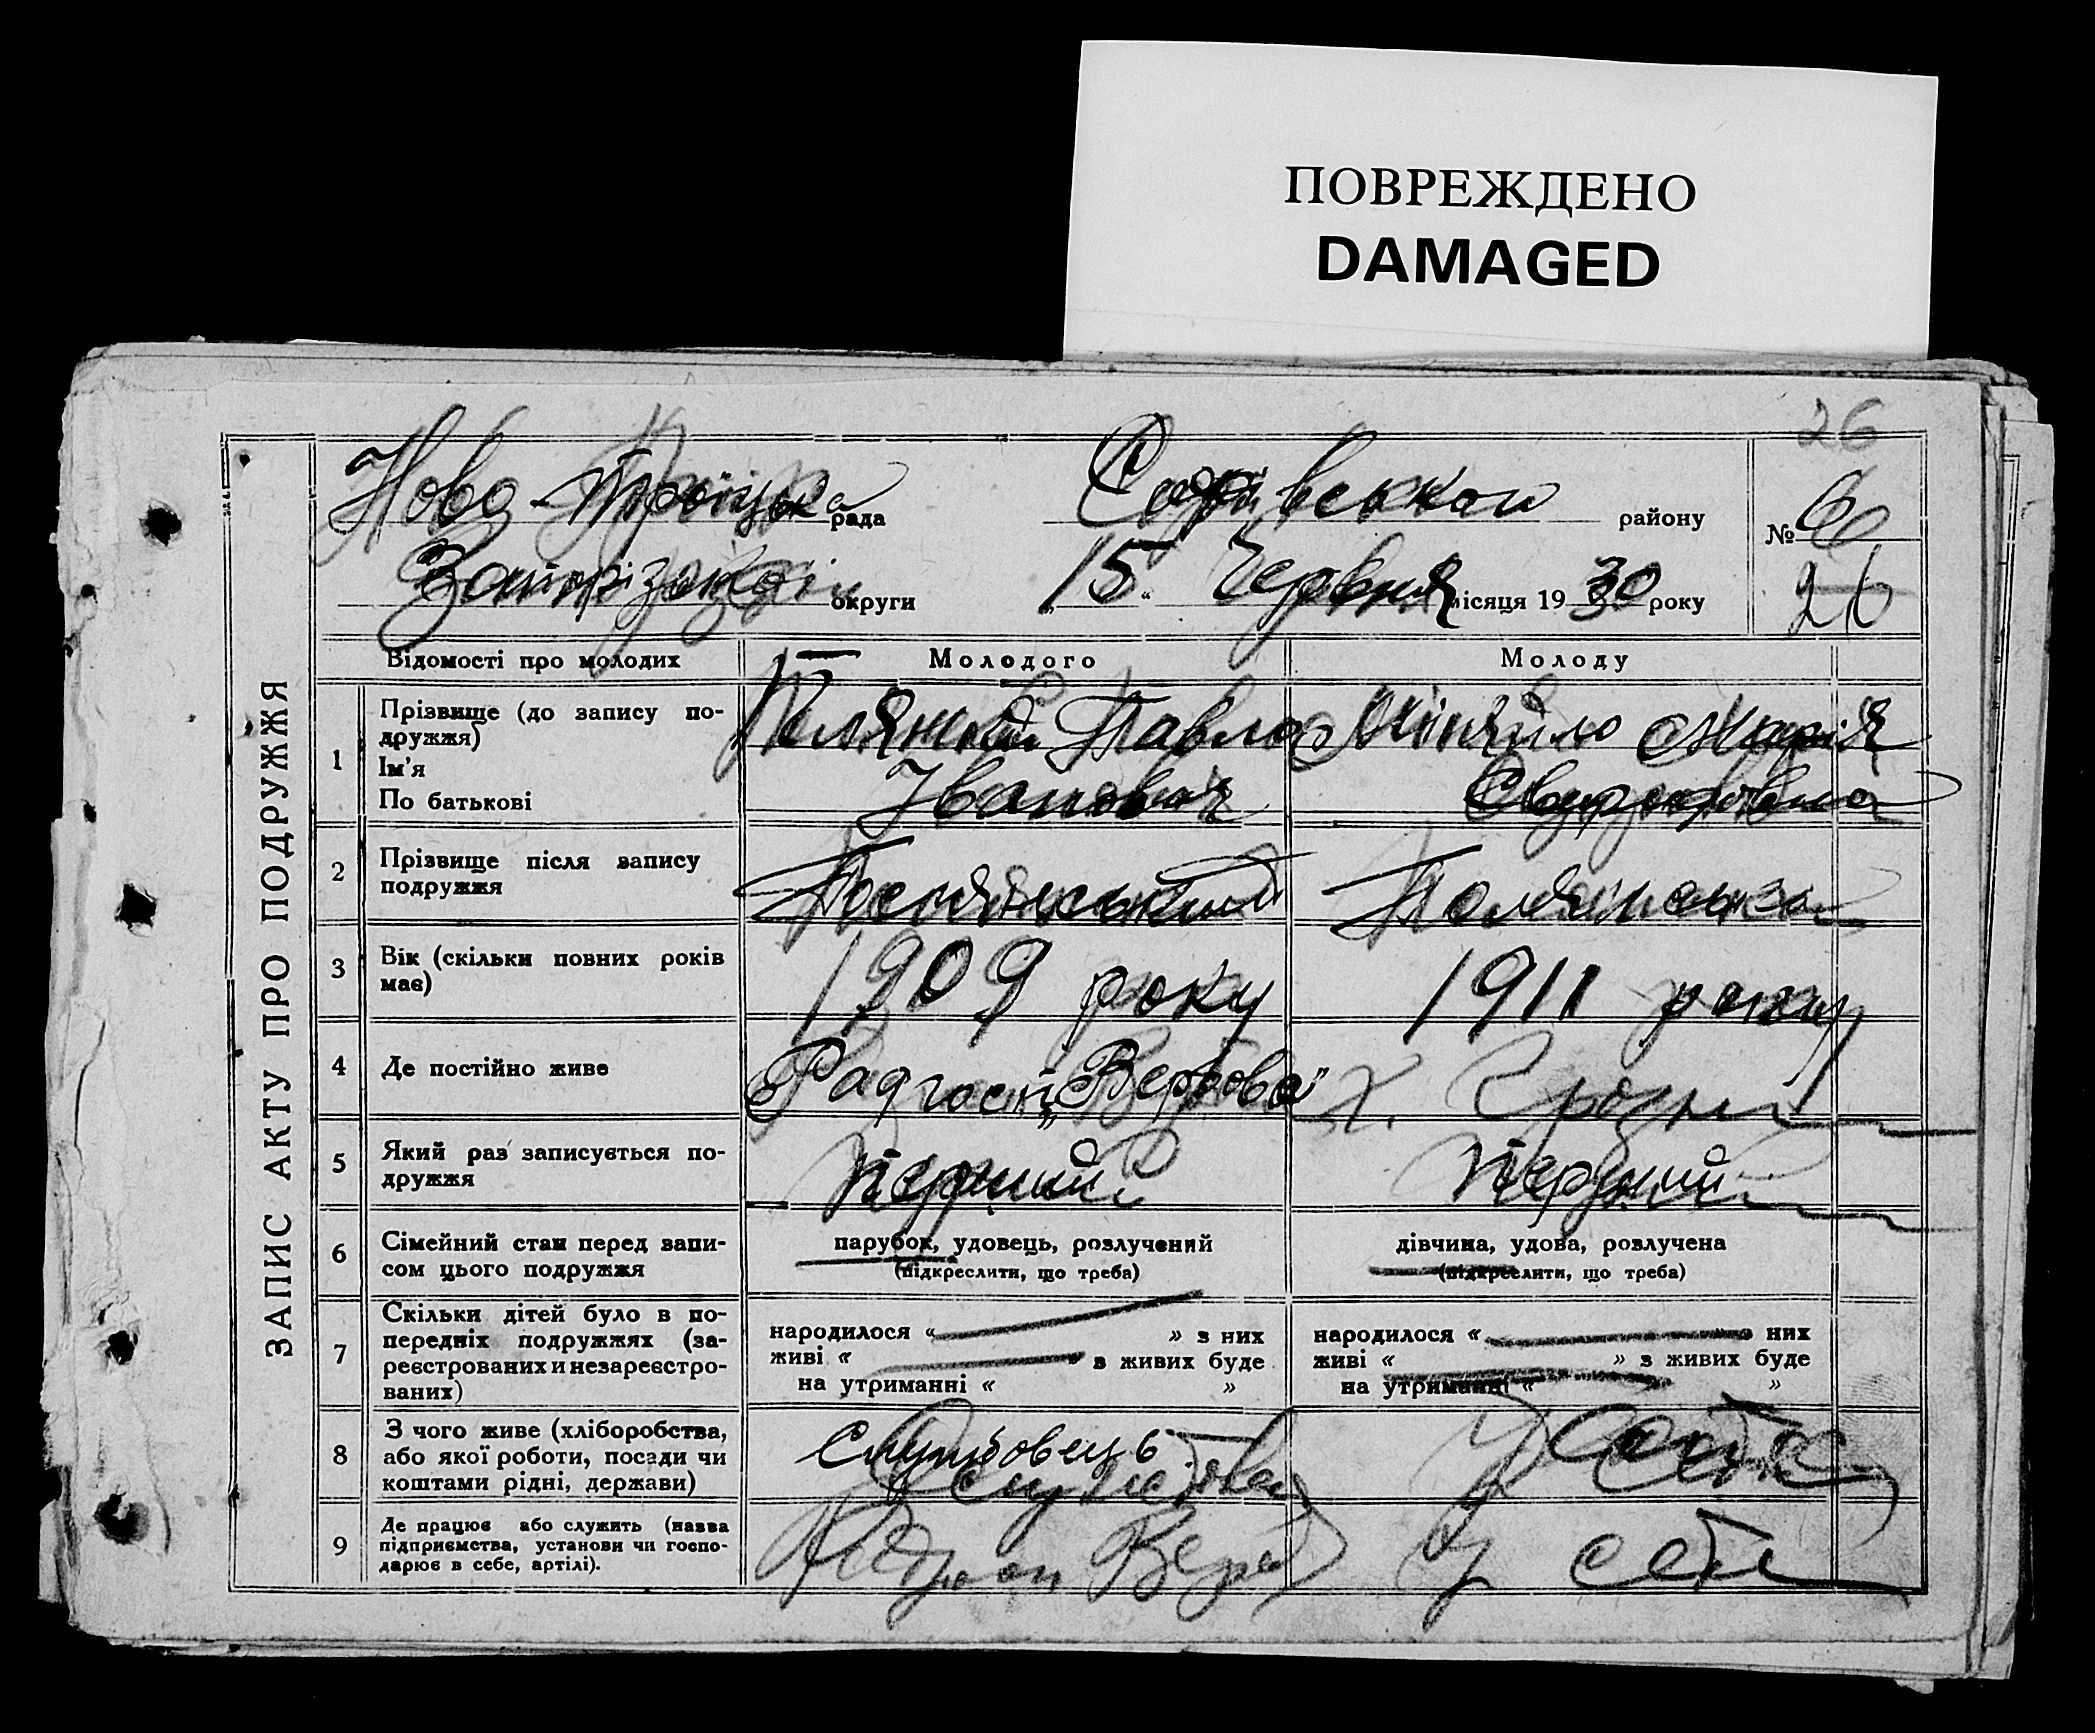 ПОВРЕЖДЕНО
DAMAGED
26
Ново-Троїцька рада району
Запорізької округи
„15“ Червня місяця 1930 року
№ 26
ЗАПИС АКТУ ПРО ПОДРУЖЖЯ
Відомості про молодих Молодого Молоду
1 Прізвище (до запису по-
дружжя)
Ім'я
По батькові
Павло Марія
Іванович
2 Прізвище після запису
подружжя
Полянська
3 Вік (скільки повних років
має)
1909 року 1911 року
4 Де постійно живе
Радгосп „Вербова"
х.
5 Який раз записується по-
дружжя
перший перший
6 Сімейний стан перед запи-
сом цього подружжя
парубок, удовець, розлучений
(підкреслити, що треба)
дівчина, удова, розлучена
(підкреслити, що треба)
7 Скільки дітей було в по-
передніх подружжях (за-
реєстрованих и незареєстро-
ваних)
народилося « » з них
живі « » з живих буде
на утриманні « »
народилося « » з них
живі « » з живих буде
на утриманні « »
8 З чого живе (хліборобства,
або якої роботи, посади чи
коштами рідні, держави)
9 Де працює або служить (назва
підприємства, установи чи госпо-
дарює в себе, артілі).
у себе